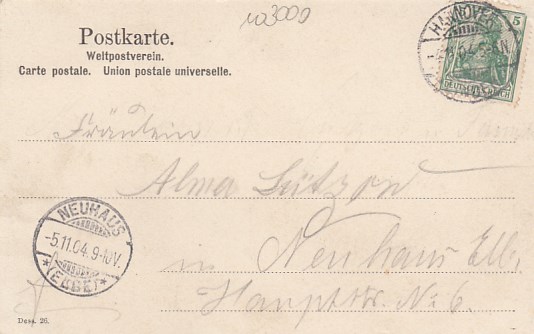 103000
Postkarte.
Weltpostverein.
Carte postale. Union postale universelle.
HANNOVER
5
DEUTSCHES REICH
Fräulein
Alma Lützow
in Neuhaus Elbe,
Hauptstr. No 6.
NEUHAUS
-5.11.04.9-10V.
*(ELBE)*
Dess. 26.